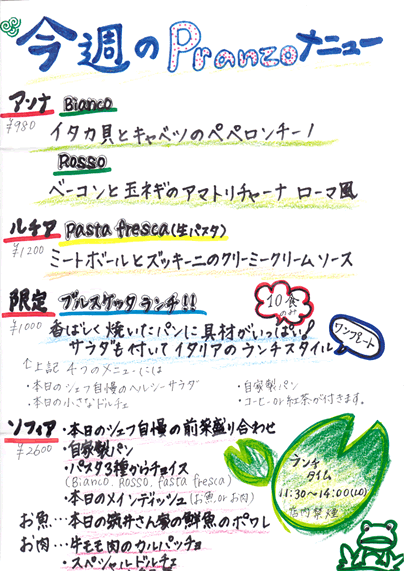 今週のPranzoメニュー
アンナ Bianco
¥980
イタカ貝とキャベツのペペロンチーノ
Rosso
ベーコンと玉ネギのアマトリチャーナ ローマ風
ルチア Pasta fresca(生パスタ)
¥1200
ミートボールとズッキーニのクリーミークリームソース
限定 ブルスケッタ ランチ!!
¥1000
10食のみ
香ばしく焼いたパンに具材がいっぱい!
サラダも付いてイタリアのランチスタイル
ワンプレート
↑上記 4つのメニューには
・本日のシェフ自慢のヘルシーサラダ
・自家製パン
・本日の小さなドルチェ
・コーヒーor紅茶が付きます。
ソフィア
¥2600
・本日のシェフ自慢の前菜盛り合わせ
・自家製パン
・パスタ3種からチョイス
(Bianco. Rosso. Pasta fresca)
・本日のメインディッシュ(お魚orお肉)
お魚…本日の筑井さん家の鮮魚のポワレ
お肉…牛モモ肉のカルパッチョ
・スペシャルドルチェ
ランチ
タイム
11:30～14:00(LO)
店内禁煙